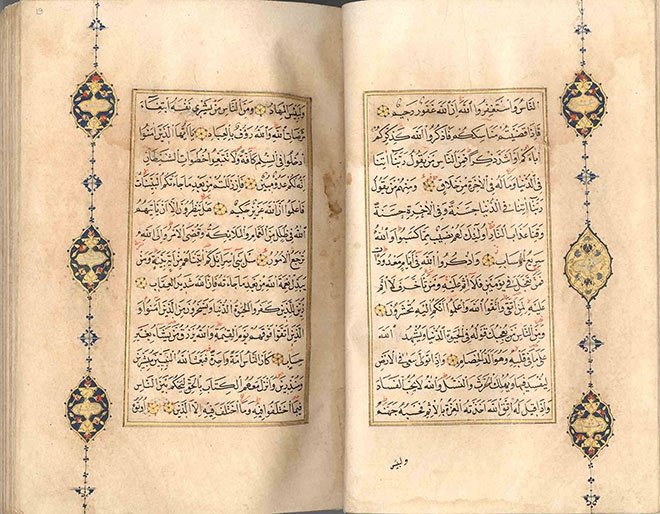 النَّاسُ وَاسْتَغْفِرُوا اللّٰهَ اِنَّ اللّٰهَ غَفُورٌ رَحِيمٌ
فَاِذَا قَضَيْتُمْ مَنَاسِكَكُمْ فَاذْكُرُوا اللّٰهَ كَذِكْرِكُمْ
اٰبَاءَكُمْ اَوْ اَشَدَّ ذِكْرًا فَمِنَ النَّاسِ مَنْ يَقُولُ رَبَّنَا اٰتِنَا
فِي الدُّنْيَا وَمَا لَهُ فِي الْاٰخِرَةِ مِنْ خَلَاقٍ وَمِنْهُمْ مَنْ يَقُولُ
رَبَّنَا اٰتِنَا فِي الدُّنْيَا حَسَنَةً وَفِي الْاٰخِرَةِ حَسَنَةً
وَقِنَا عَذَابَ النَّارِ اُولٰئِكَ لَهُمْ نَصِيبٌ مِمَّا كَسَبُوا وَاللّٰهُ
سَرِيعُ الْحِسَابِ وَاذْكُرُوا اللّٰهَ فِي اَيَّامٍ مَعْدُودَاتٍ
فَمَنْ تَعَجَّلَ فِي يَوْمَيْنِ فَلَا اِثْمَ عَلَيْهِ وَمَنْ تَاَخَّرَ فَلَا اِثْمَ
عَلَيْهِ لِمَنِ اتَّقٰى وَاتَّقُوا اللّٰهَ وَاعْلَمُوا اَنَّكُمْ اِلَيْهِ تُحْشَرُونَ
وَمِنَ النَّاسِ مَنْ يُعْجِبُكَ قَوْلُهُ فِي الْحَيٰوةِ الدُّنْيَا وَيُشْهِدُ اللّٰهَ
عَلٰى مَا فِي قَلْبِهِ وَهُوَ اَلَدُّ الْخِصَامِ وَاِذَا تَوَلّٰى سَعٰى فِي الْاَرْضِ
لِيُفْسِدَ فِيهَا وَيُهْلِكَ الْحَرْثَ وَالنَّسْلَ وَاللّٰهُ لَا يُحِبُّ الْفَسَادَ
وَاِذَا قِيلَ لَهُ اتَّقِ اللّٰهَ اَخَذَتْهُ الْعِزَّةُ بِالْاِثْمِ فَحَسْبُهُ جَهَنَّمُ
ولبئس
وَلَبِئْسَ الْمِهَادُ وَمِنَ النَّاسِ مَنْ يَشْرِي نَفْسَهُ ابْتِغَاءَ
مَرْضَاتِ اللّٰهِ وَاللّٰهُ رَؤُفٌ بِالْعِبَادِ يَا اَيُّهَا الَّذِينَ اٰمَنُوا
ادْخُلُوا فِي السِّلْمِ كَافَّةً وَلَا تَتَّبِعُوا خُطُوَاتِ الشَّيْطَانِ
اِنَّهُ لَكُمْ عَدُوٌّ مُبِينٌ فَاِنْ زَلَلْتُمْ مِنْ بَعْدِ مَا جَاءَتْكُمُ الْبَيِّنَاتُ
فَاعْلَمُوا اَنَّ اللّٰهَ عَزِيزٌ حَكِيمٌ هَلْ يَنْظُرُونَ اِلَّا اَنْ يَاْتِيَهُمُ
اللّٰهُ فِي ظُلَلٍ مِنَ الْغَمَامِ وَالْمَلَائِكَةُ وَقُضِيَ الْاَمْرُ وَاِلَى اللّٰهِ
تُرْجَعُ الْاُمُورُ سَلْ بَنِي اِسْرَائِيلَ كَمْ اٰتَيْنَاهُمْ مِنْ اٰيَةٍ بَيِّنَةٍ وَمَنْ
يُبَدِّلْ نِعْمَةَ اللّٰهِ مِنْ بَعْدِ مَا جَاءَتْهُ فَاِنَّ اللّٰهَ شَدِيدُ الْعِقَابِ
زُيِّنَ لِلَّذِينَ كَفَرُوا الْحَيٰوةُ الدُّنْيَا وَيَسْخَرُونَ مِنَ الَّذِينَ اٰمَنُوا
وَالَّذِينَ اتَّقَوْا فَوْقَهُمْ يَوْمَ الْقِيٰمَةِ وَاللّٰهُ يَرْزُقُ مَنْ يَشَاءُ بِغَيْرِ
حِسَابٍ كَانَ النَّاسُ اُمَّةً وَاحِدَةً فَبَعَثَ اللّٰهُ النَّبِيِّينَ مُبَشِّرِينَ
وَمُنْذِرِينَ وَاَنْزَلَ مَعَهُمُ الْكِتَابَ بِالْحَقِّ لِيَحْكُمَ بَيْنَ النَّاسِ
فِيمَا اخْتَلَفُوا فِيهِ وَمَا اخْتَلَفَ فِيهِ اِلَّا الَّذِينَ اُوتُوهُ